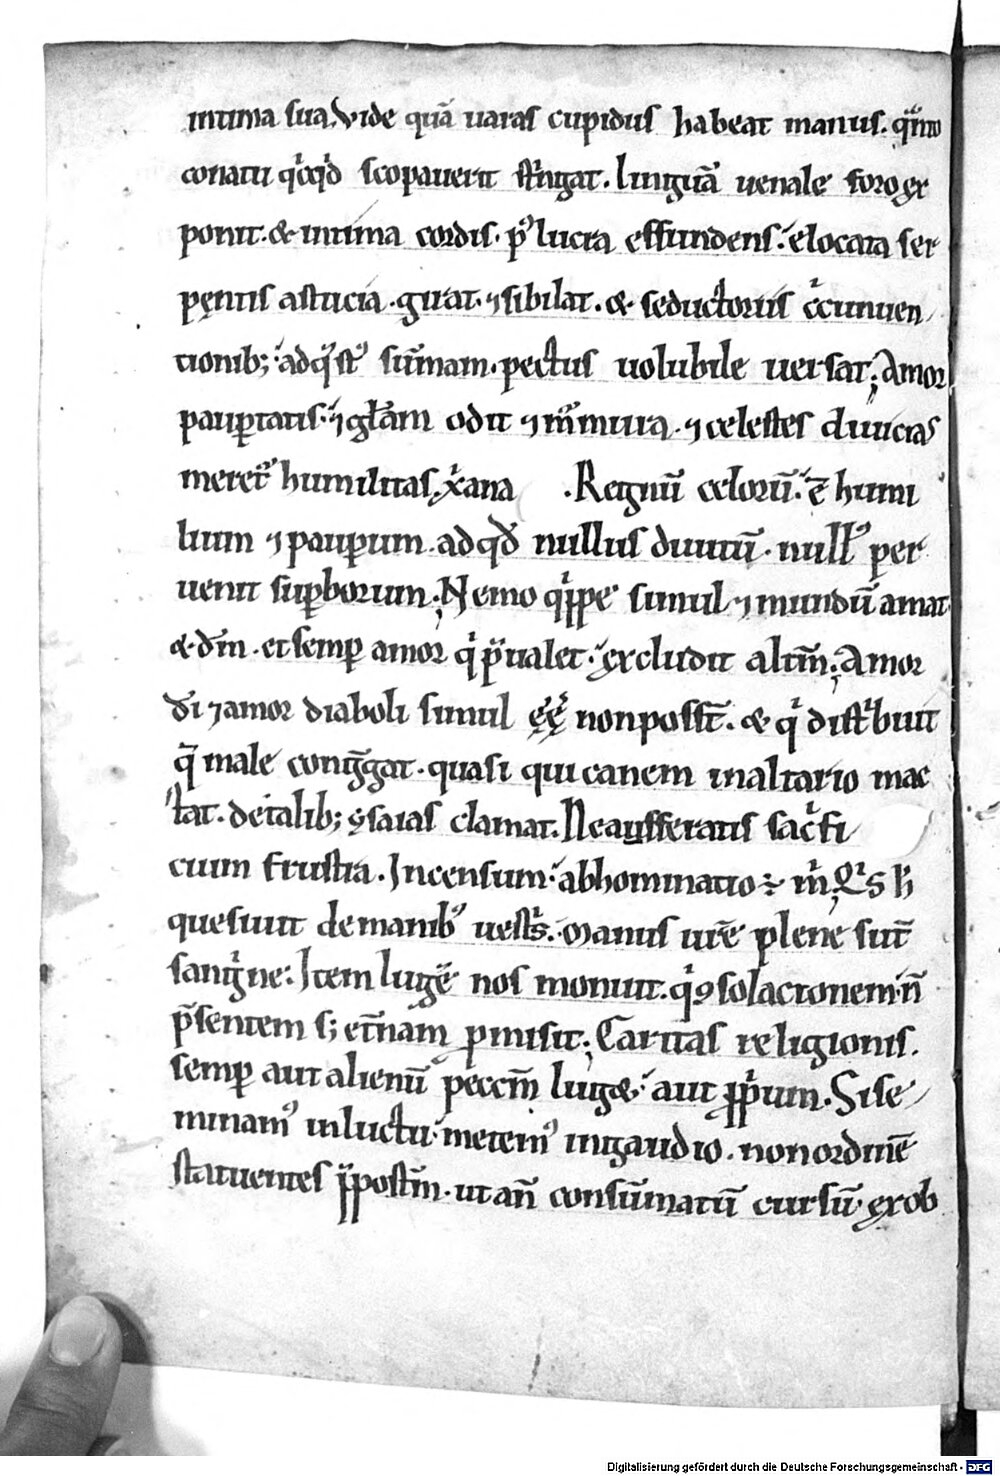 intima sua. Vide quā uaras cupidus habeat manus. qͣnto
conatu qͥcqͥd scopauerit stͥngat. linguā uenale foro ex
ponit. & intima cordis. ꝓ lucra effundens. elocata ser
pentis astucia. girat. ⁊ sibilat. & seductoriis cͥcunuen
tionib; adqͥstꝰ sum̄am. pectus uolubile uersat; Amor
paup̄tatis. ⁊ gl̄am odit ⁊ mͬmura. ⁊ celestes diuicias
meret᷑ humilitas xͥana. Regnū celorū. ē humi
lium ⁊ paup̄um. ad qd̄ nullus diuitū. nullꝰ per
uenit sup̄borum; Nemo qͥppe simul ⁊ mundū amat
& dm̄. et semꝑ amor qͥ p̄ualet. excludit altm̄; Amor
dī ⁊ amor diaboli simul ēē non posst̄. & qͥ distͥbuit
q̄ male cong̅gat. quasi qui canem in altario mac
tat. de talib; ysaias clamat. Ne afferatis sacͥfi
cium frustra. Incensum. abhominatio ÷ m̄; Qͥs h̄
quesiuit de manibꝰ uestͥs. Manus ur̄e plene sūt
sangͥne: Item lugē nos monuit. qͥ ꝯsolacionem n̄
p̄sentem s; et̄nam ꝓmisit; Caritas religionis.
semꝑ aut alienū peccm̄ lug&. aut ꝓpͥum. Si se
minamꝰ in luctu. metemꝰ in gaudio. non ordinē
statuentes p̄postm̄. ut an̄ consūmatū cursū. ex ob